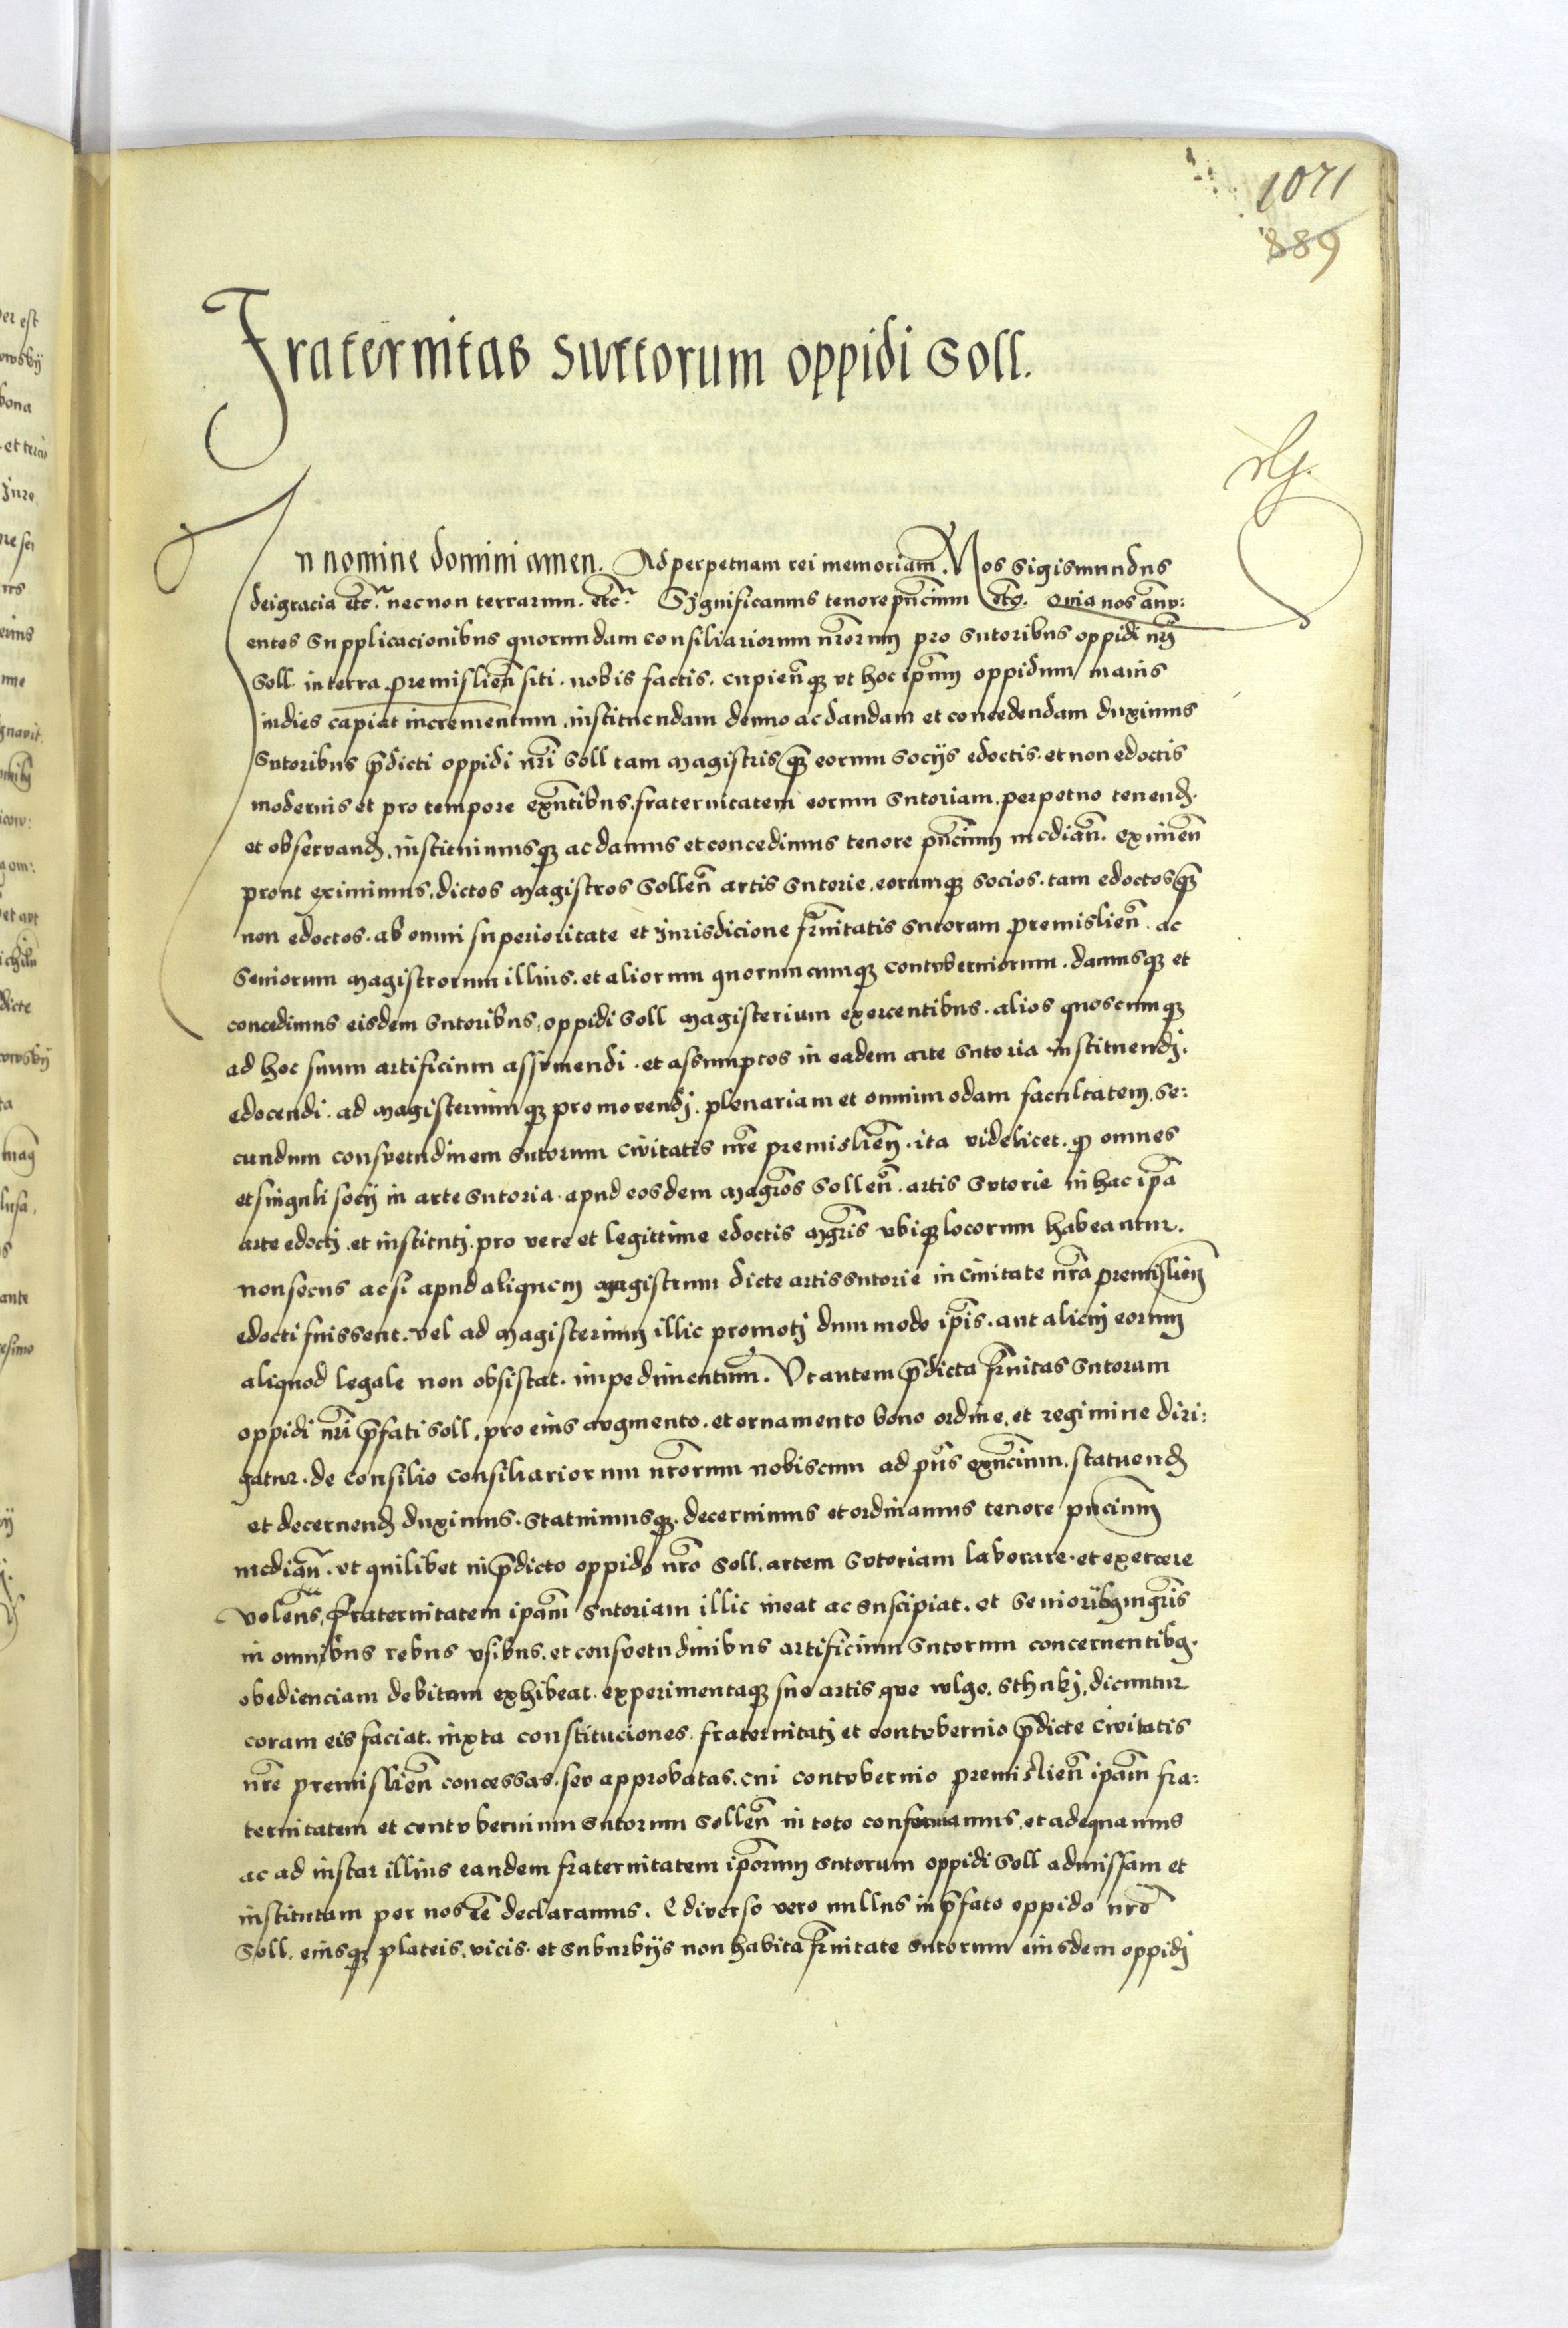 1071
889
Fraternitas Suttorum oppidi Soll.
In nomine domini amen. Ad perpetuam rei memoriam. Nos Sigismundus
deigracia etc. necnon terrarum. etc. Significamus tenore pñcium etc. Quia nos annu:
entes supplicacionibus quorumdam consiliariorum nr̃orum pro sutoribus oppidi nr̃i
Soll. in terra premislieñ siti. nobis factis. cupieñq; ut hoc ip̃um oppidum maius
indies capiat incrementum. instituendam denuo ac dandam et concedendam duximus
Sutoribus p̃dicti oppidi nr̃i Soll tam magistris q̃ eorum socijs edoctis. et non edoctis
modernis et pro tempore exñtibus. fraternitatem eorum sutoriam. perpetuo tenend.
et observand. instituimusq; ac damus et concedimus tenore pñcium mediañ. eximeñ
prout eximimus. dictos magistros Solleñ artis sutorie. eorumq; socios. tam edoctos q̃
non edoctos. ab omni superioritate et Jurisdicione fr̃nitatis sutorum premislieñ. ac
Seniorum magistrorum illius. et aliorum quorumcumq; contuberniorum. damusq; et
concedimus eisdem sutoribus. oppidi Soll magisterium exercentibus. alios quoscumq;
ad hoc suum artificium assumendi. et assumptos in eadem arte sutoria instituendj.
edocendi. ad magisteriumq; promovendj. plenariam et omnimodam facultatem. se:
cundum consuetudinem sutorum Civitatis nr̃e premislieñ. ita videlicet. q̃ omnes
et singuli socij in arte sutoria. apud eosdem magr̃os Solleñ. artis sutorie in hac ip̃a
arte edoctj. et institutj. pro vere et legittime edoctis mgr̃is ubiq; locorum habeantur.
non secus ac si apud aliquem magistrum dicte artis sutorie in civitate nr̃a premislieñ
edocti fuissent. vel ad magisterium illic promotj dummodo ip̃is. aut alicui eorum
aliquod legale non obsistat. impedimentum. Ut autem p̃dicta fr̃nitas sutorum
oppidi nr̃i p̃fati Soll. pro eius augmento. et ornamento bono ordine. et regimine diri:
gatur. de consilio consiliariorum nr̃orum nobiscum ad pñs exñcium. statuend
et decernend duximus. Statuimusq;. decernimus et ordinamus tenore pñcium
mediañ. ut quilibet in p̃dicto oppido nr̃o Soll. artem sutoriam laborare. et exercere
volens. fraternitatem ip̃am sutoriam illic ineat ac suscipiat. et seniorib; mgr̃is
in omnibus rebus usibus. et consuetudinibus artificium sutorum concernentib;.
obedienciam debitam exhibeat. experimentaq; sue artis que vulgo. sthukj. dicuntur
coram eis faciat. iuxta constituciones. fraternitatj et contubernio p̃dicte Civitatis
nr̃e premislieñ concessas. seu approbatas. cui contubernio premislieñ ip̃am fra:
ternitatem et contubernium sutorum Solleñ in toto conformamus. et adequamus
ac ad instar illius eandem fraternitatem ip̃orum sutorum oppidi Soll admissam et
institutam per nos ẽe declaramus. E diverso vero nullus in p̃fato oppido nr̃o
Soll. eiusq; plateis. vicis. et suburbijs non habita fr̃nitate sutorum eiusdem oppidj